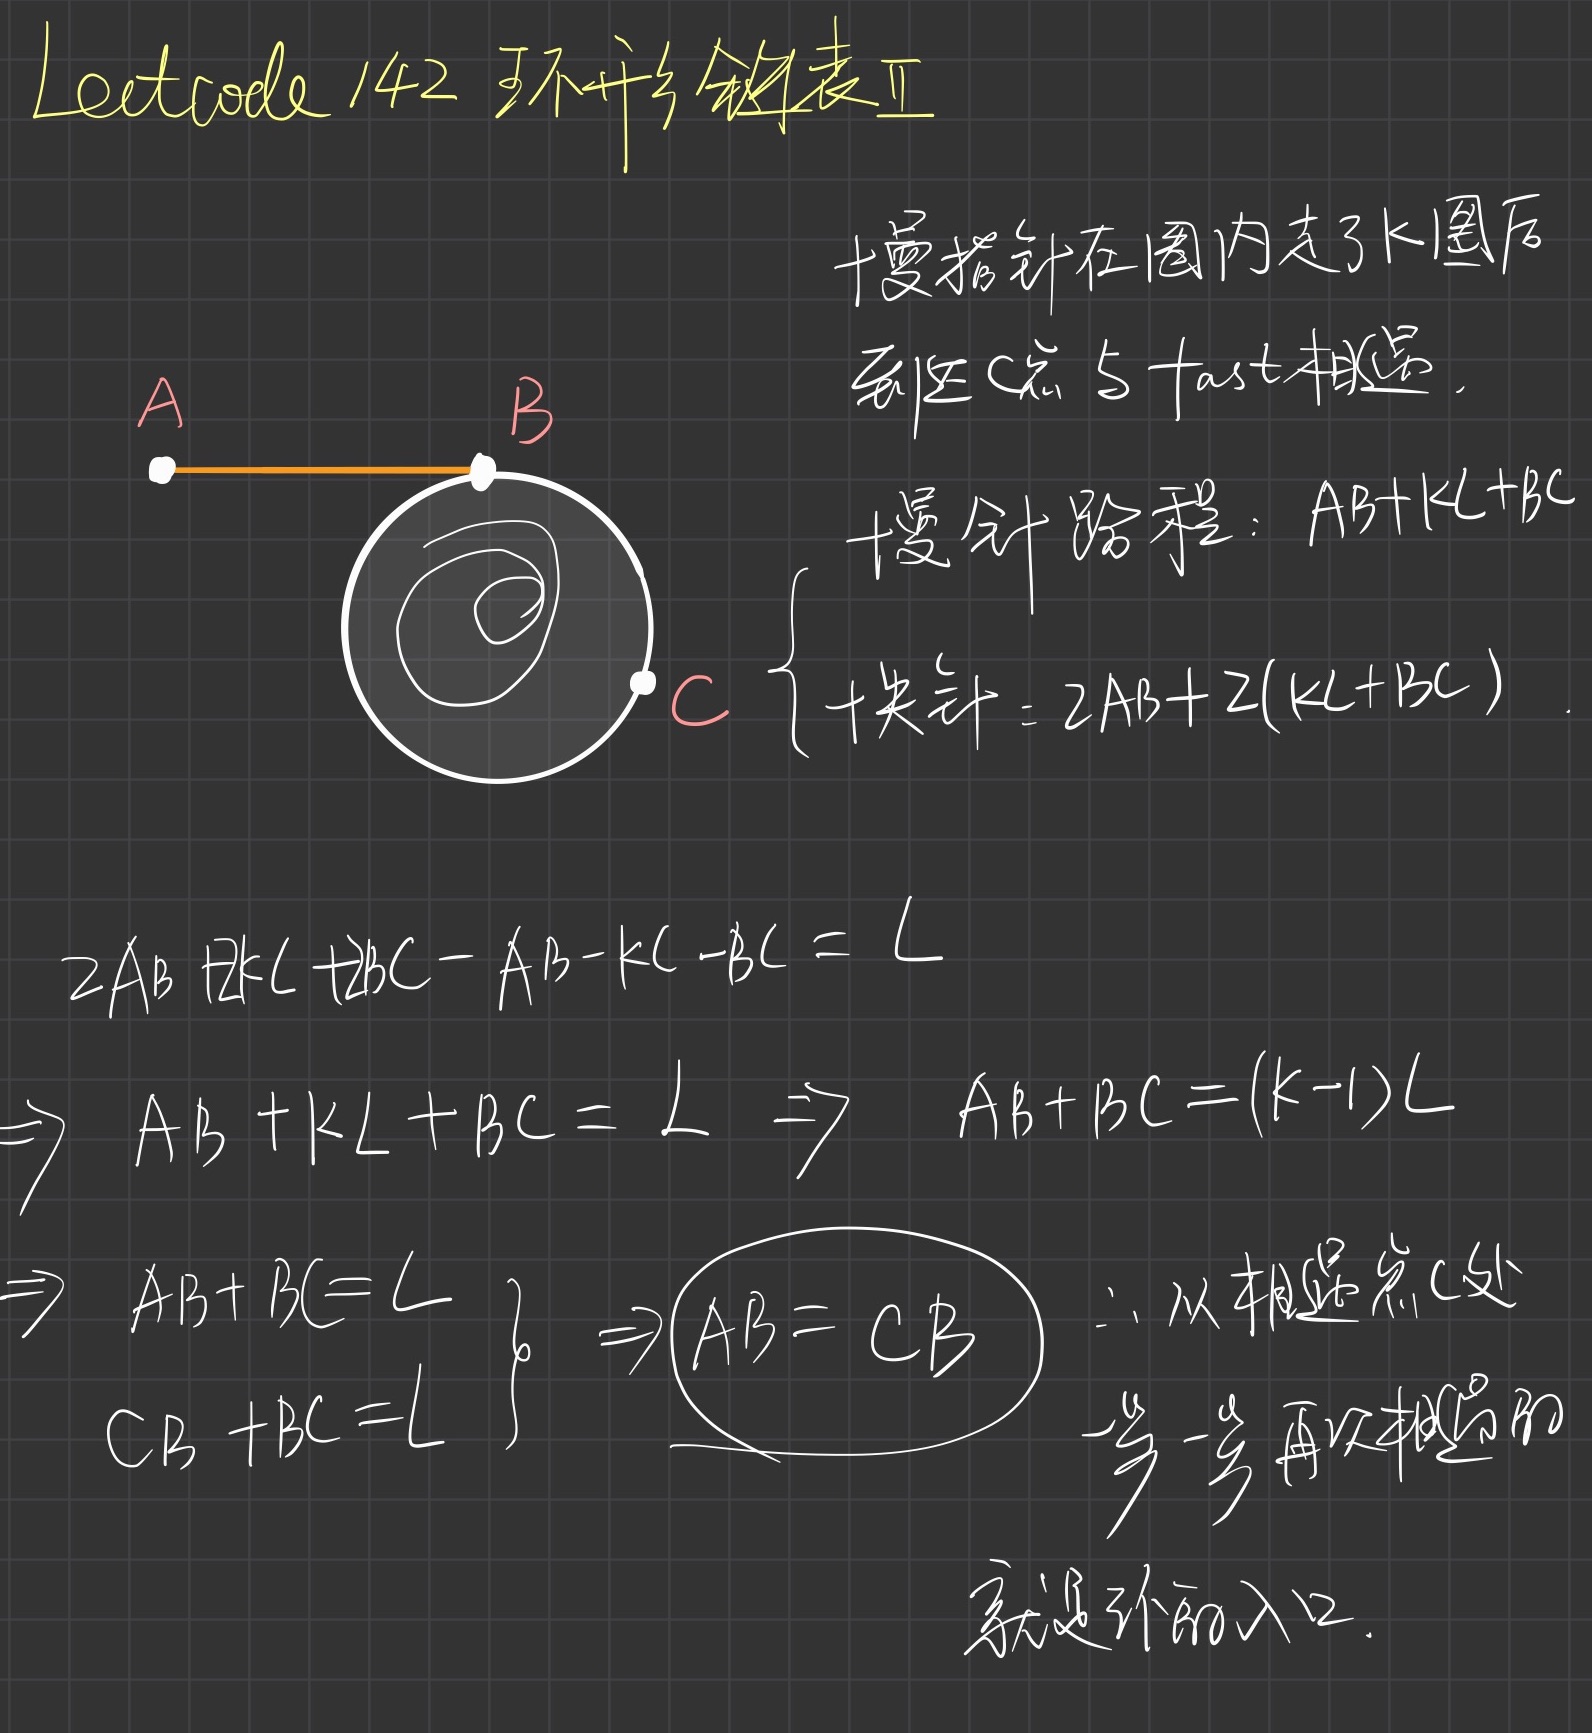 Leetcode 142 环形链表 II
慢指针在圈内走了K圈后
到达C点与fast相遇.
A
B
慢针路程: AB+KL+BC
C
快针: 2AB+2(KL+BC).
2AB+2KL+2BC-AB-KL-BC=L
⇒ AB+KL+BC=L ⇒ AB+BC=(K-1)L
⇒ AB+BC=L
CB+BC=L
⇒ AB=CB
∴ 从相遇点C处
一步一步再次相遇的
就是环的入口.